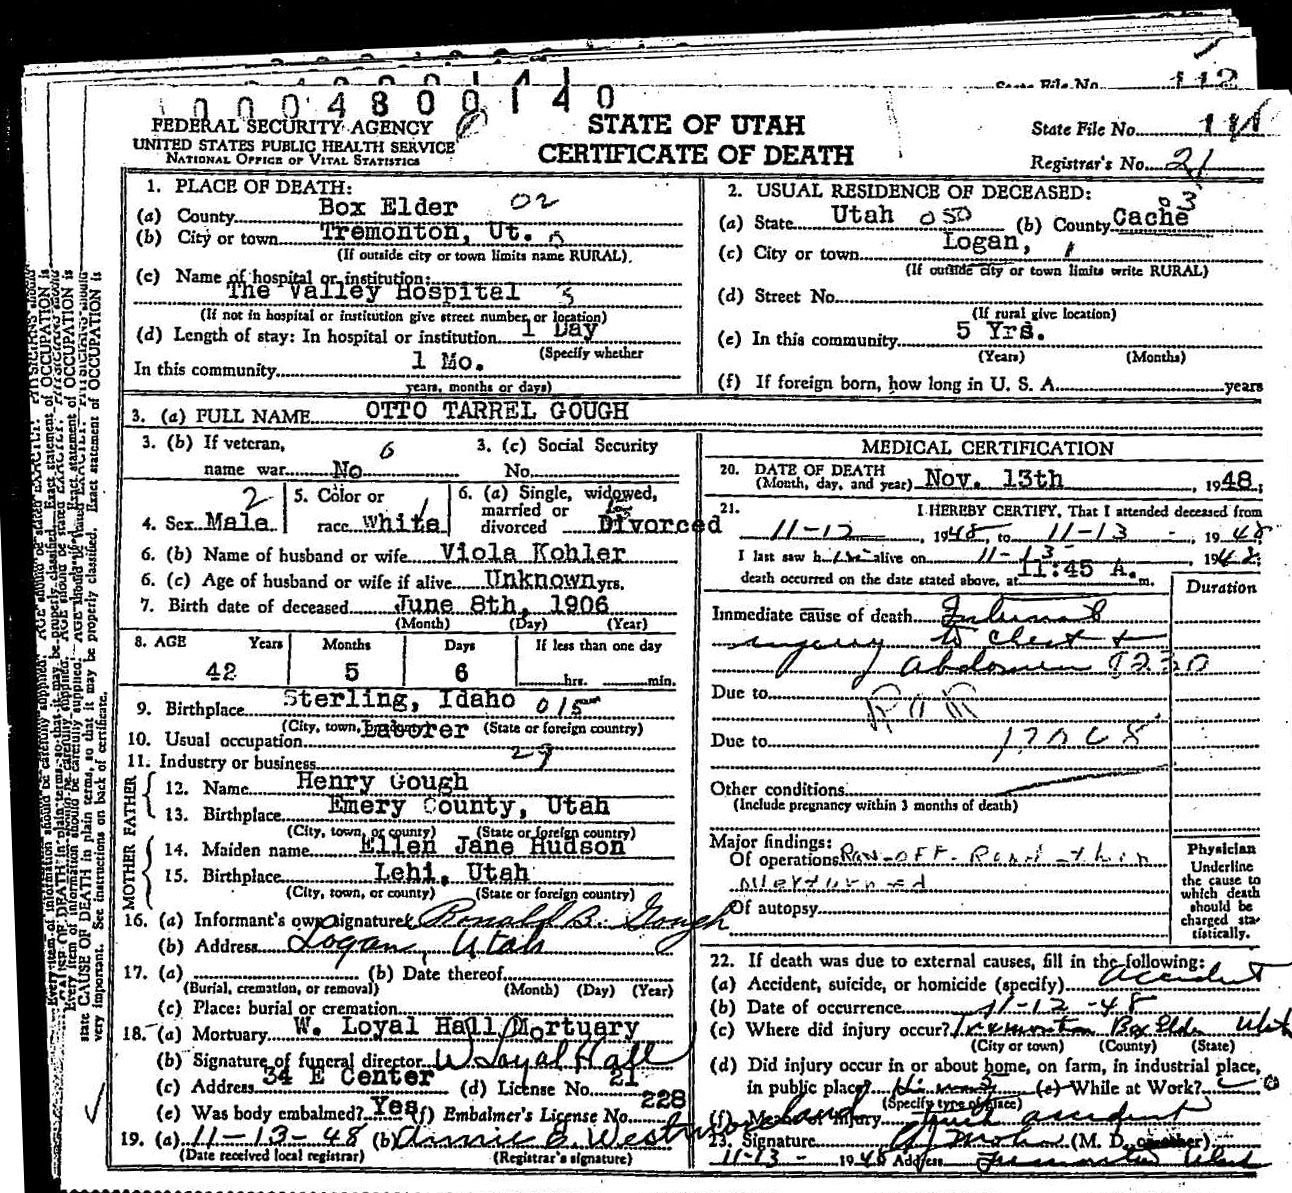 112
0004800140
FEDERAL SECURITY AGENCY
UNITED STATES PUBLIC HEALTH SERVICE
NATIONAL OFFICE OF VITAL STATISTICS
STATE OF UTAH
CERTIFICATE OF DEATH
State File No.
Registrar's No. 21
1. PLACE OF DEATH:
(a) County Box Elder 02
(b) City or town Tremonton, Ut.
(If outside city or town limits name RURAL)
(c) Name of hospital or institution:
The Valley Hospital 3
(If not in hospital or institution give street number or location)
(d) Length of stay: In hospital or institution 1 Day
(Specify whether
In this community 1 Mo.
years, months or days)
2. USUAL RESIDENCE OF DECEASED:
(a) State Utah 050 (b) County Cache 03
(c) City or town Logan, 1
(If outside city or town limits write RURAL)
(d) Street No.
(If rural give location)
(e) In this community 5 Yrs.
(Years) (Months)
(f) If foreign born, how long in U. S. A. years
3. (a) FULL NAME OTTO TARREL GOUGH
3. (b) If veteran, 6
name war No
3. (c) Social Security
No.
4. Sex Male 2
5. Color or
race White 1
6. (a) Single, widowed,
married or
divorced Divorced
6. (b) Name of husband or wife Viola Kohler
6. (c) Age of husband or wife if alive Unknown yrs.
7. Birth date of deceased June 8th, 1906
(Month) (Day) (Year)
8. AGE Years Months Days If less than one day
42 5 6 hrs. min.
9. Birthplace Sterling, Idaho 015
(City, town, or county) (State or foreign country)
10. Usual occupation Laborer
11. Industry or business 29
FATHER
12. Name Henry Gough
13. Birthplace Emery County, Utah
(City, town, or county) (State or foreign country)
MOTHER
14. Maiden name Ellen Jane Hudson
15. Birthplace Lehi, Utah
(City, town, or county) (State or foreign country)
16. (a) Informant's own signature Ronald B. Gough
(b) Address Logan, Utah
17. (a) (b) Date thereof
(Burial, cremation, or removal) (Month) (Day) (Year)
(c) Place: burial or cremation
18. (a) Mortuary W. Loyal Hall Mortuary
(b) Signature of funeral director W Loyal Hall
(c) Address 34 E Center (d) License No. 21
(e) Was body embalmed? Yes (f) Embalmer's License No. 228
19. (a) 11-13-48 (b) Annie E. Westmoreland
(Date received local registrar) (Registrar's signature)
MEDICAL CERTIFICATION
20. DATE OF DEATH
(Month, day, and year) Nov. 13th, 1948;
21. I HEREBY CERTIFY, That I attended deceased from
11-12, 1948, to 11-13, 1948
I last saw him alive on 11-13, 1948;
death occurred on the date stated above, at 11:45 A. m.
Duration
Immediate cause of death Internal
injury to chest +
Abdomen
Due to
Due to
Other conditions
(Include pregnancy within 3 months of death)
Major findings:
Of operations Ran-off-Road-then
overturned
Of autopsy
Physician
Underline
the cause to
which death
should be
charged sta-
tistically.
22. If death was due to external causes, fill in the following:
(a) Accident, suicide, or homicide (specify) accident
(b) Date of occurrence 11-12-48
(c) Where did injury occur? Tremonton Box Elder Utah
(City or town) (County) (State)
(d) Did injury occur in or about home, on farm, in industrial place,
in public place? (e) While at Work?
(Specify type of place)
(f) Means of injury Truck accident
23. Signature (M. D. or other)
11-13- 1948 Address Tremonton Utah